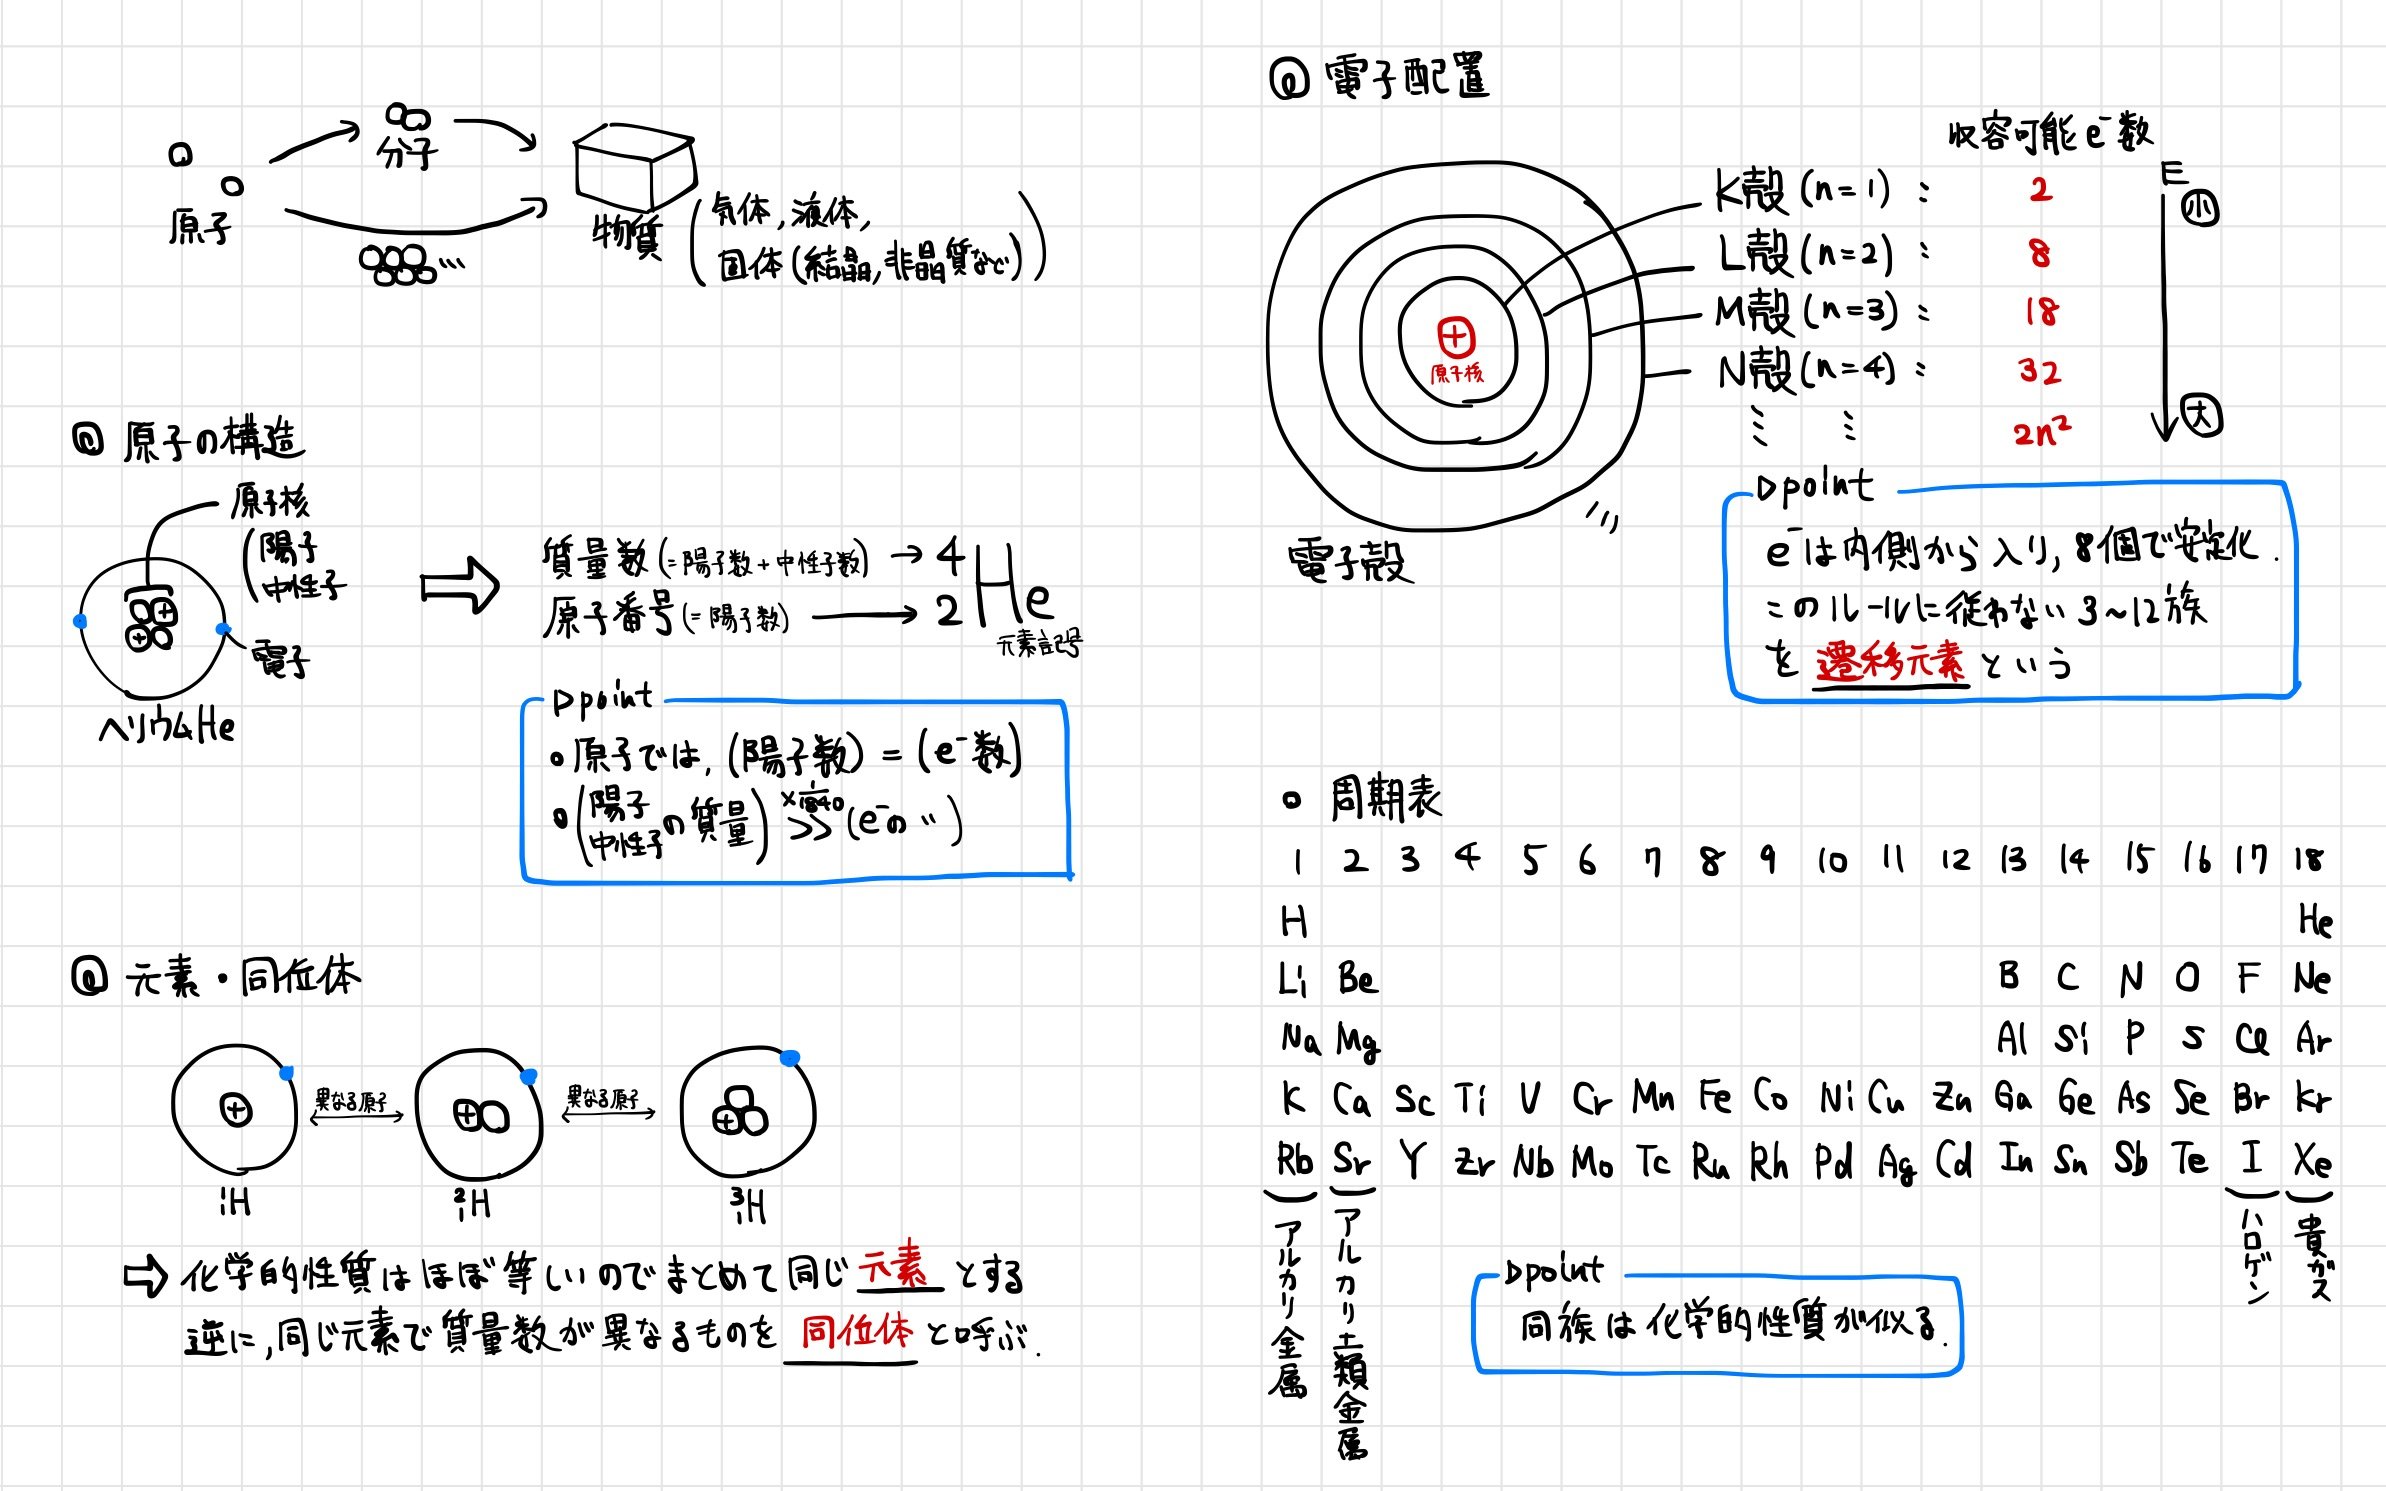 原子
分子
物質
(気体,液体,
固体(結晶,非晶質など))
◎ 原子の構造
原子核
(陽子
中性子
電子
ヘリウムHe
質量数(=陽子数+中性子数) → 4
原子番号(=陽子数) → 2
He
元素記号
▷point
○原子では,(陽子数)=(e⁻数)
○(陽子 中性子の質量) ×1/1840 ≫ (e⁻の〃)
◎ 元素・同位体
異なる原子
異なる原子
¹₁H
²₁H
³₁H
⇒ 化学的性質はほぼ等しいのでまとめて同じ元素とする
逆に,同じ元素で質量数が異なるものを同位体と呼ぶ.
◎ 電子配置
収容可能e⁻数
K殻(n=1): 2
L殻(n=2): 8
M殻(n=3): 18
N殻(n=4): 32
⋮ ⋮ 2n²
E
小
大
+
原子核
電子殻
▷point
e⁻は内側から入り,8個で安定化.
このルールに従わない3~12族
を遷移元素という
○ 周期表
1 2 3 4 5 6 7 8 9 10 11 12 13 14 15 16 17 18
H He
Li Be B C N O F Ne
Na Mg Al Si P S Cl Ar
K Ca Sc Ti V Cr Mn Fe Co Ni Cu Zn Ga Ge As Se Br Kr
Rb Sr Y Zr Nb Mo Tc Ru Rh Pd Ag Cd In Sn Sb Te I Xe
アルカリ金属
アルカリ土類金属
ハロゲン
貴ガス
▷point
同族は化学的性質が似る.